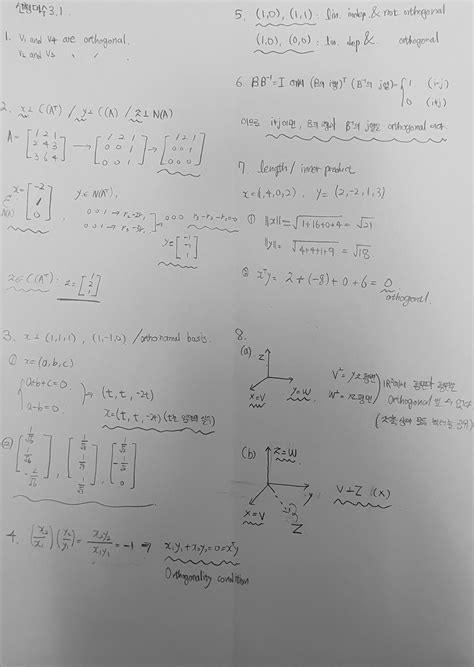 선형대수 3.1
1. V₁ and V₄ are orthogonal.
V₂ and V₃ 〃 〃
2. x ⊥ C(Aᵀ) / y ⊥ C(A) / z ⊥ N(A)
A = [1 2 1; 2 4 3; 3 6 4] → [1 2 1; 0 0 1; 0 0 1] → [1 2 1; 0 0 1; 0 0 0]
x = [-2; 1; 0]
∈ N(A)
y ∈ N(Aᵀ),
0 0 1 → r₂-2r₁
0 0 1 → r₃-3r₁
0 0 0 r₃-r₂-r₁=0
y = [-1; -1; 1]
z ∈ C(Aᵀ) : z = [1; 2; 1]
3. x ⊥ (1,1,1), (1,-1,0) / orthonormal basis.
① x = (a,b,c)
a+b+c=0
a-b=0
→ (t, t, -2t)
x = (t, t, -2t)
② [1/√6; 1/√6; -2/√6], [1/√3; 1/√3; 1/√3], [1/√2; -1/√2; 0]
4. (x₂/x₁)(y₂/y₁) = x₂y₂/x₁y₁ = -1 ⇒ x₁y₁+x₂y₂=0=xᵀy
Orthogonality condition
5. (1,0), (1,1) : lin. indep. & not orthogonal
(1,0), (0,0) : lin. dep & orthogonal
6. BB⁻¹=I 에서 (B의 i행)ᵀ (B⁻¹의 j열) = { 1 (i=j)
0 (i≠j)
이므로 i≠j이면, B의 i행이 B⁻¹의 j열은 orthogonal 이다
7. length / inner product
x=(1,4,0,2), y=(2,-2,1,3)
① ||x|| = √1+16+0+4 = √21
||y|| = √4+4+1+9 = √18
② xᵀy = 2+(-8)+0+6 = 0
orthogonal.
8.
(a) z
x=V y=W
V⊥ = yz평면
W⊥ = xz평면
IR³에서 평면과 평면은
Orthogonal 할 수 없다
(b) z=W
y
x=V
Z
V⊥Z (x)